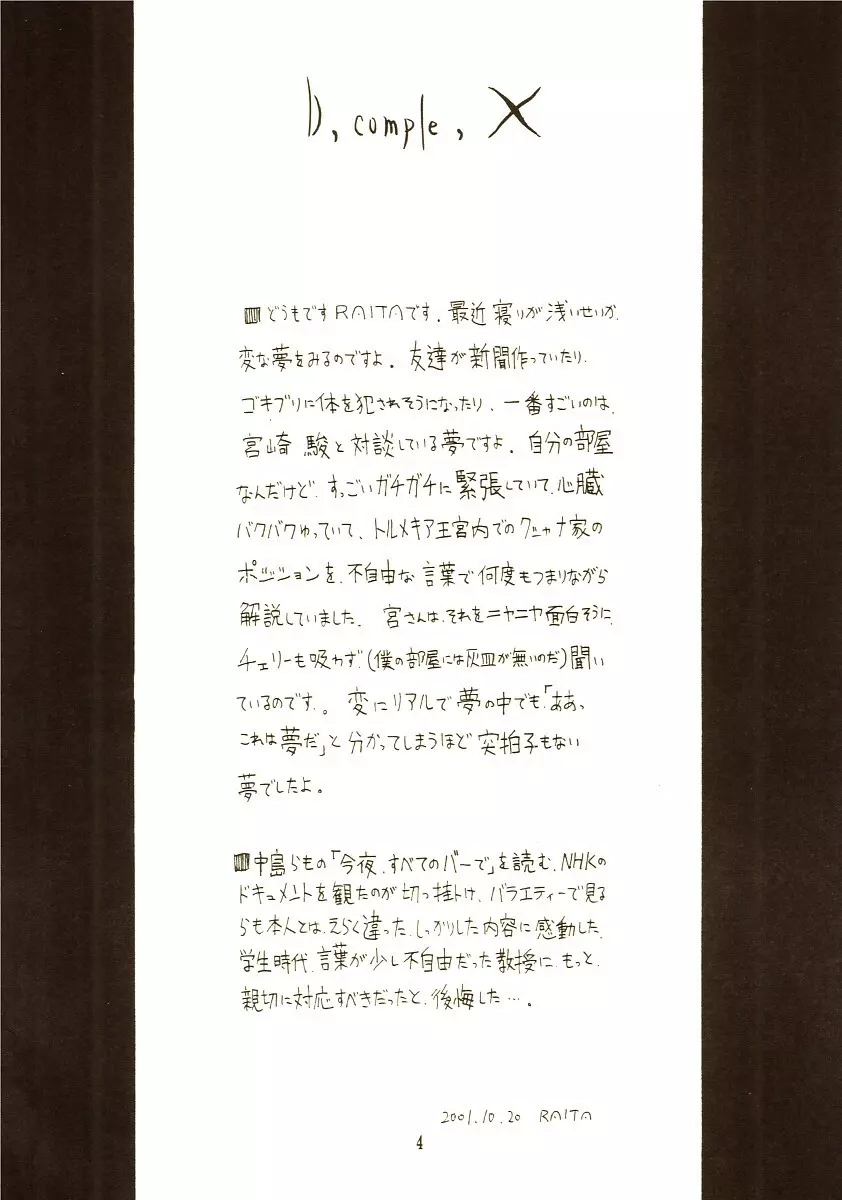 D, comple, X
どうもですRAITAです. 最近寝りが浅いせいか.
変な夢をみるのですよ. 友達が新聞作っていたり.
ゴキブリに体を犯されそうになったり、一番すごいのは.
宮崎 駿と対談している夢ですよ. 自分の部屋
なんだけど. すっごいガチガチに緊張していて. 心臓
バクバクゆっていて、トルメキア王宮内でのクシャナ家の
ポジションを. 不自由な言葉で何度もつまりながら
解説していました. 宮さんは. それをニヤニヤ面白そうに.
チェリーも吸わず. (僕の部屋には灰皿が無いのだ)聞い
ているのです. 。変にリアルで夢の中でも.「ああっ
これは夢だ」と分かってしまうほど突拍子もない
夢でしたよ。
中島らもの「今夜、すべてのバーで」を読む. NHKの
ドキュメントを観たのが切っ掛け. バラエティーで見る
らも本人とは. えらく違った. しっかりした内容に感動した.
学生時代. 言葉が少し不自由だった教授に. もっと.
親切に対応すべきだったと. 後悔した…。
2001.10.20 RAITA
4